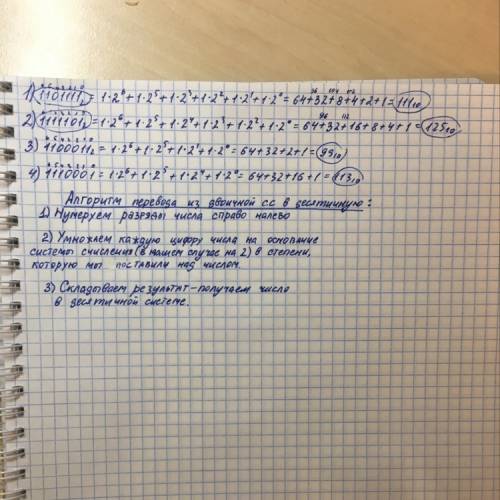 1) 1101111₂ = 1·2⁶+1·2⁵+1·2³+1·2²+1·2¹+1·2⁰= 64+32+8+4+2+1= 111₁₀
2) 1111101₂ = 1·2⁶+1·2⁵+1·2⁴+1·2³+1·2²+1·2⁰= 64+32+16+8+4+1= 125₁₀
3) 1100011₂ = 1·2⁶+1·2⁵+1·2¹+1·2⁰= 64+32+2+1= 99₁₀
4) 1110001 = 1·2⁶+1·2⁵+1·2⁴+1·2⁰= 64+32+16+1= 113₁₀
Алгоритм перевода из двоичной с.с в десятичную:
1) Нумеруем разряды числа справо налево
2) Умножаем каждую цифру числа на основание
системы счисления (в нашем случае на 2) в степени,
которую мы поставили над числом.
3) Складываем результат - получаем число
в десятичной системе.